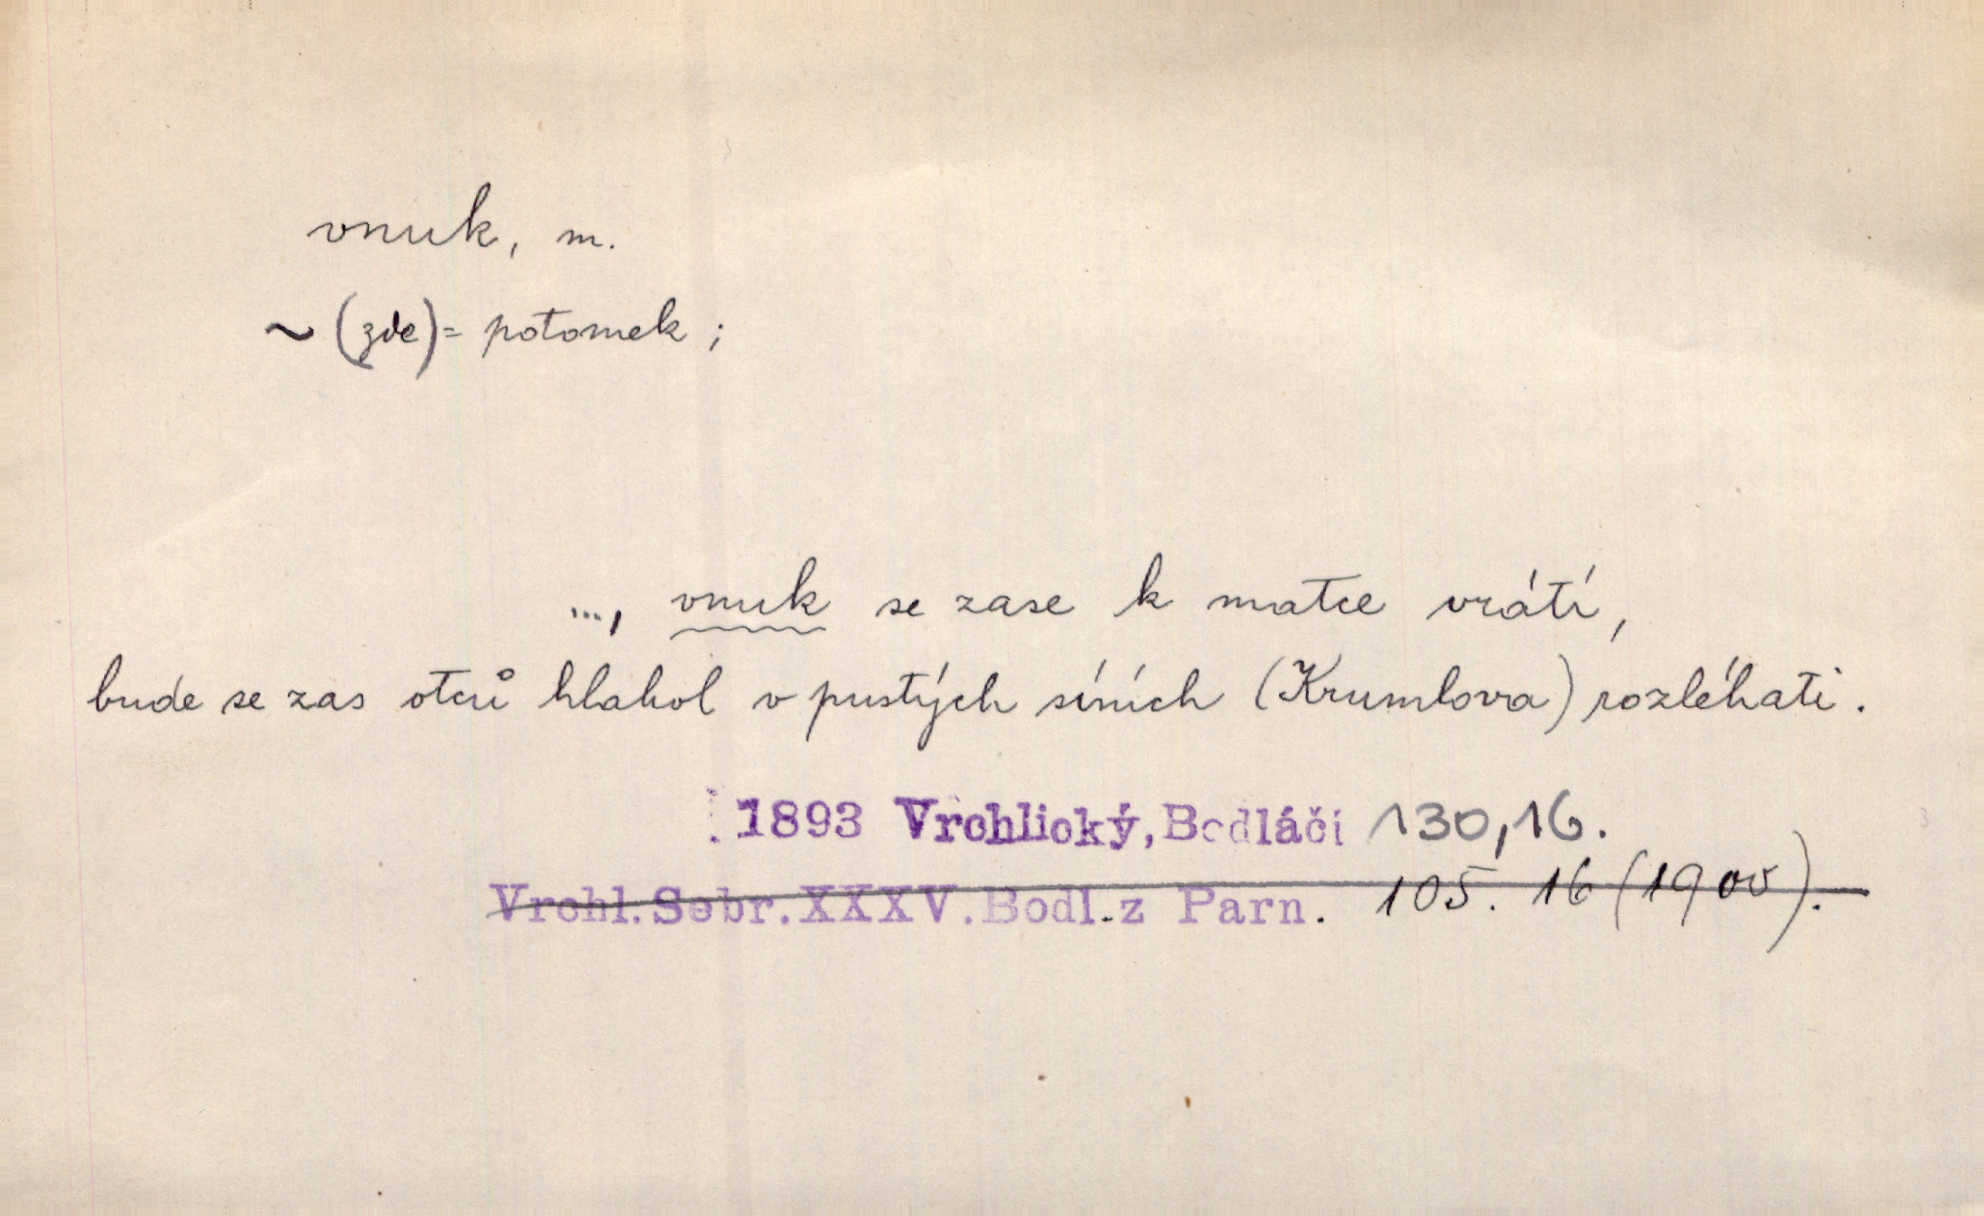 vnuk, m.
~ (zde) = potomek ;
..., vnuk se zase k matce vrátí,
bude se zas otců hlahol v pustých síních (Krumlova) rozléhati.
1893 Vrchlický, Bodláčí 130,16.
Vrchl. Sebr. XXXV. Bodl. z Parn. 105. 16 (1900).